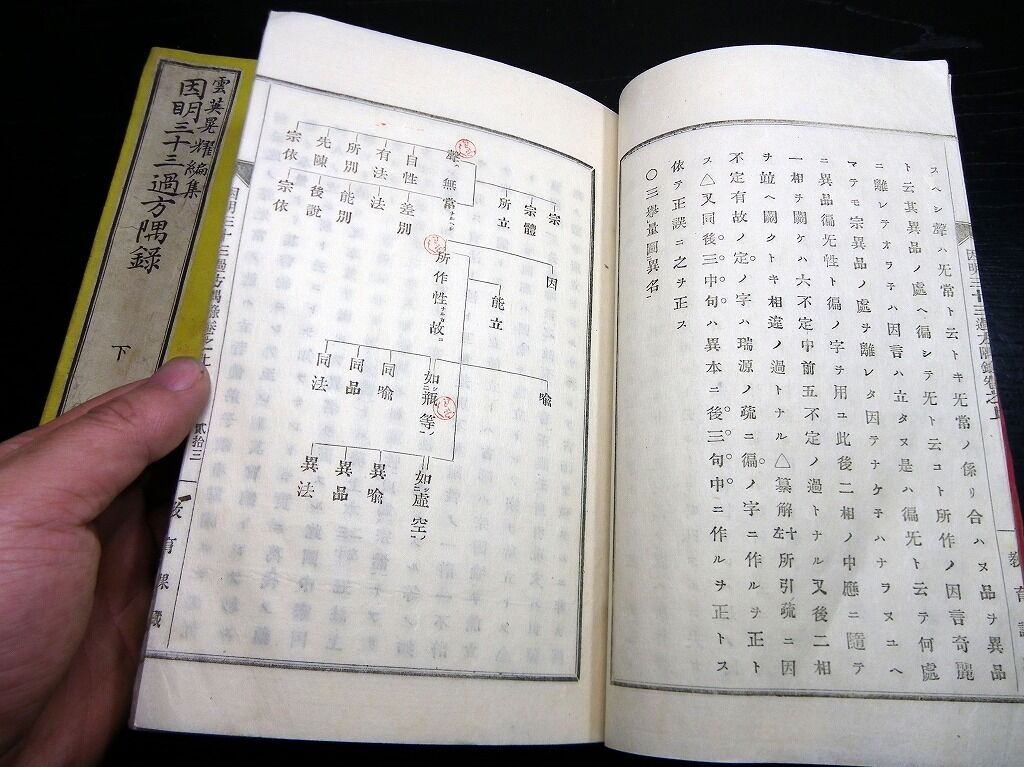 因明三十三過方隅錄卷之上
敎育
スヘシ聲ハ旡常ト云トキ旡常ノ係リ合ハヌ品ヲ異品
ト云其異品ノ處ヘ徧シテ旡ト云コト所作ノ因言奇麗
ニ離レテオラテハ因言ハ立タヌ是ハ徧旡ト云テ何處
マテモ宗異品ノ處ヲ離レタ因テナケ子ハナラヌユヘ
ニ異品徧旡性ト徧ノ字ヲ用ユ此後二相ノ中應ニ隨テ
一相ヲ闕ケハ六不定中前五不定ノ過トナル又後二相
ヲ竝ヘ闕クトキ相違ノ過トナル△纂解十左所引疏ニ因
不定有故ノ定ノ字ハ瑞源ノ疏ニ徧ノ字ニ作ルヲ正ト
ス△又同後三中句ハ異本ニ後三句中ニ作ルヲ正トス
依テ正誤ニ之ヲ正ス
○三擧量圖異名
宗
宗體
所立
因
能立
喩
聲ハ無常ナルヘシ
所作性ナルカ故ニ
如シ瓶等ノ
如シ虛空ノ
自性 差別
有法 法
所別 能別
先陳 後說
宗依 宗依
同喩
同品
同法
異喩
異品
異法
因明三十三過方隅錄卷之上
貳拾三
敎育課藏
雲英晃耀編集
因明三十三過方隅錄
下